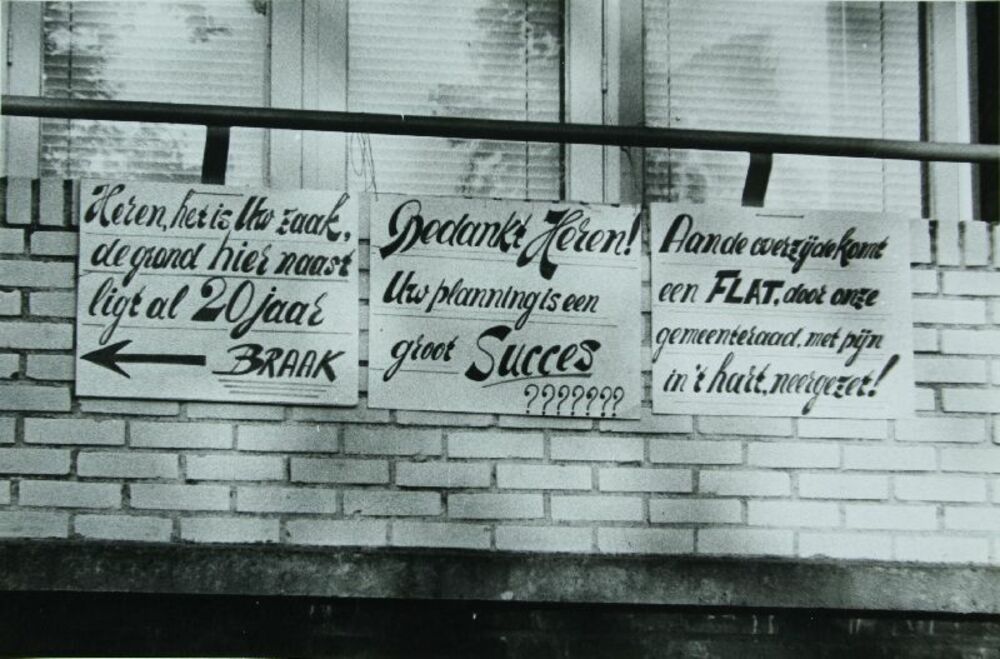 Heren, het is Uw zaak,
de grond hier naast
ligt al 20 jaar
BRAAK
Bedankt Heren!
Uw planning is een
groot Succes
???????
Aan de overzijde komt
een FLAT, door onze
gemeenteraad, met pijn
in 't hart, neergezet!